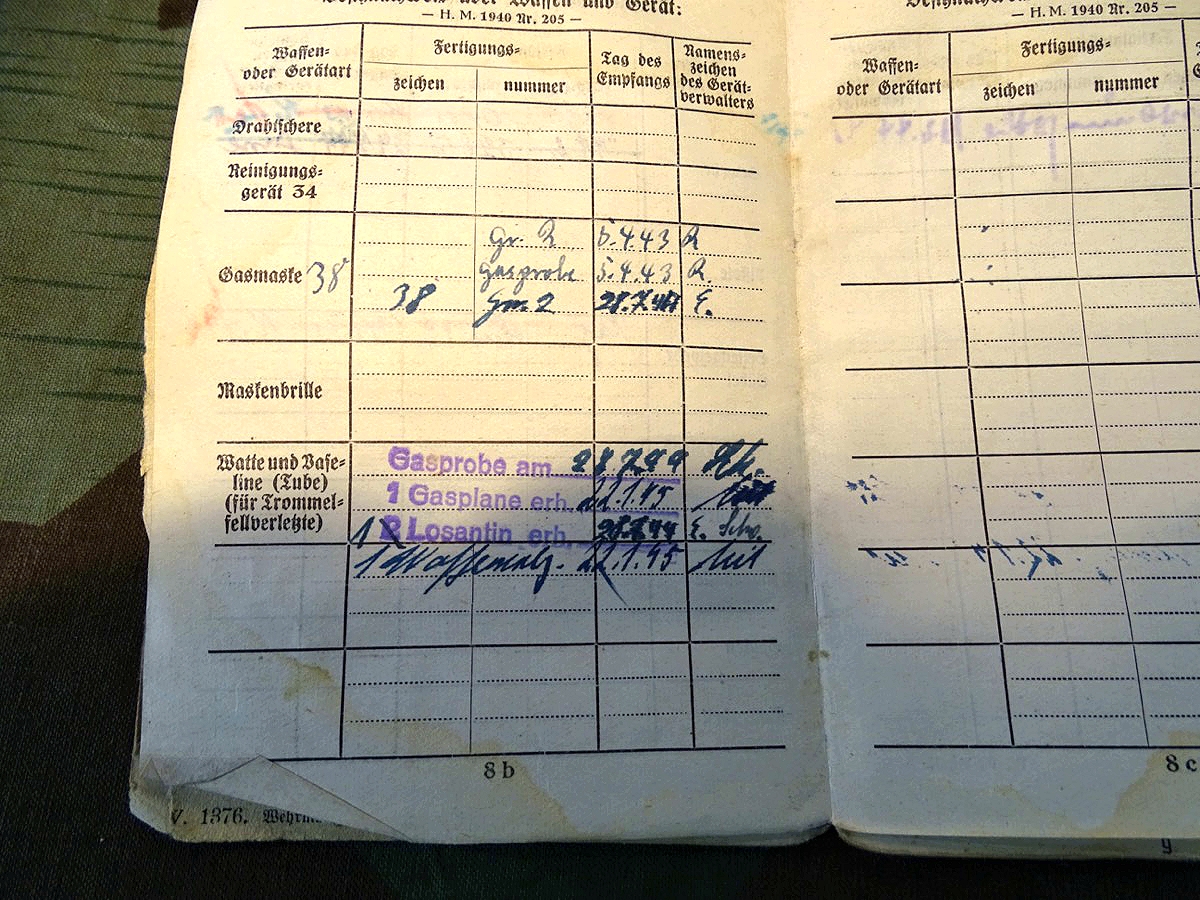 über Waffen und Gerät:
— H. M. 1940 Nr. 205 —
Waffen-
oder Gerätart
Fertigungs-
zeichen
nummer
Tag des
Empfangs
Namens-
zeichen
des Gerät-
verwalters
Drahtschere
Reinigungs-
gerät 34
Gr. 2 5.4.43 R
Gasmaske 38 Gasprobe 5.4.43 R.
38 Gm. 2 28.7.44 E.
Maskenbrille
Watte und Vase-
line (Tube)
(für Trommel-
fellverletzte)
Gasprobe am 28.7.44
1 Gasplane erh. 22.1.45
1 2 Losantin erh. 28.7.44 E.
1 22.1.45
8 b
V. 1376.
— H. M. 1940 Nr. 205 —
Waffen-
oder Gerätart
Fertigungs-
zeichen
nummer
8 c